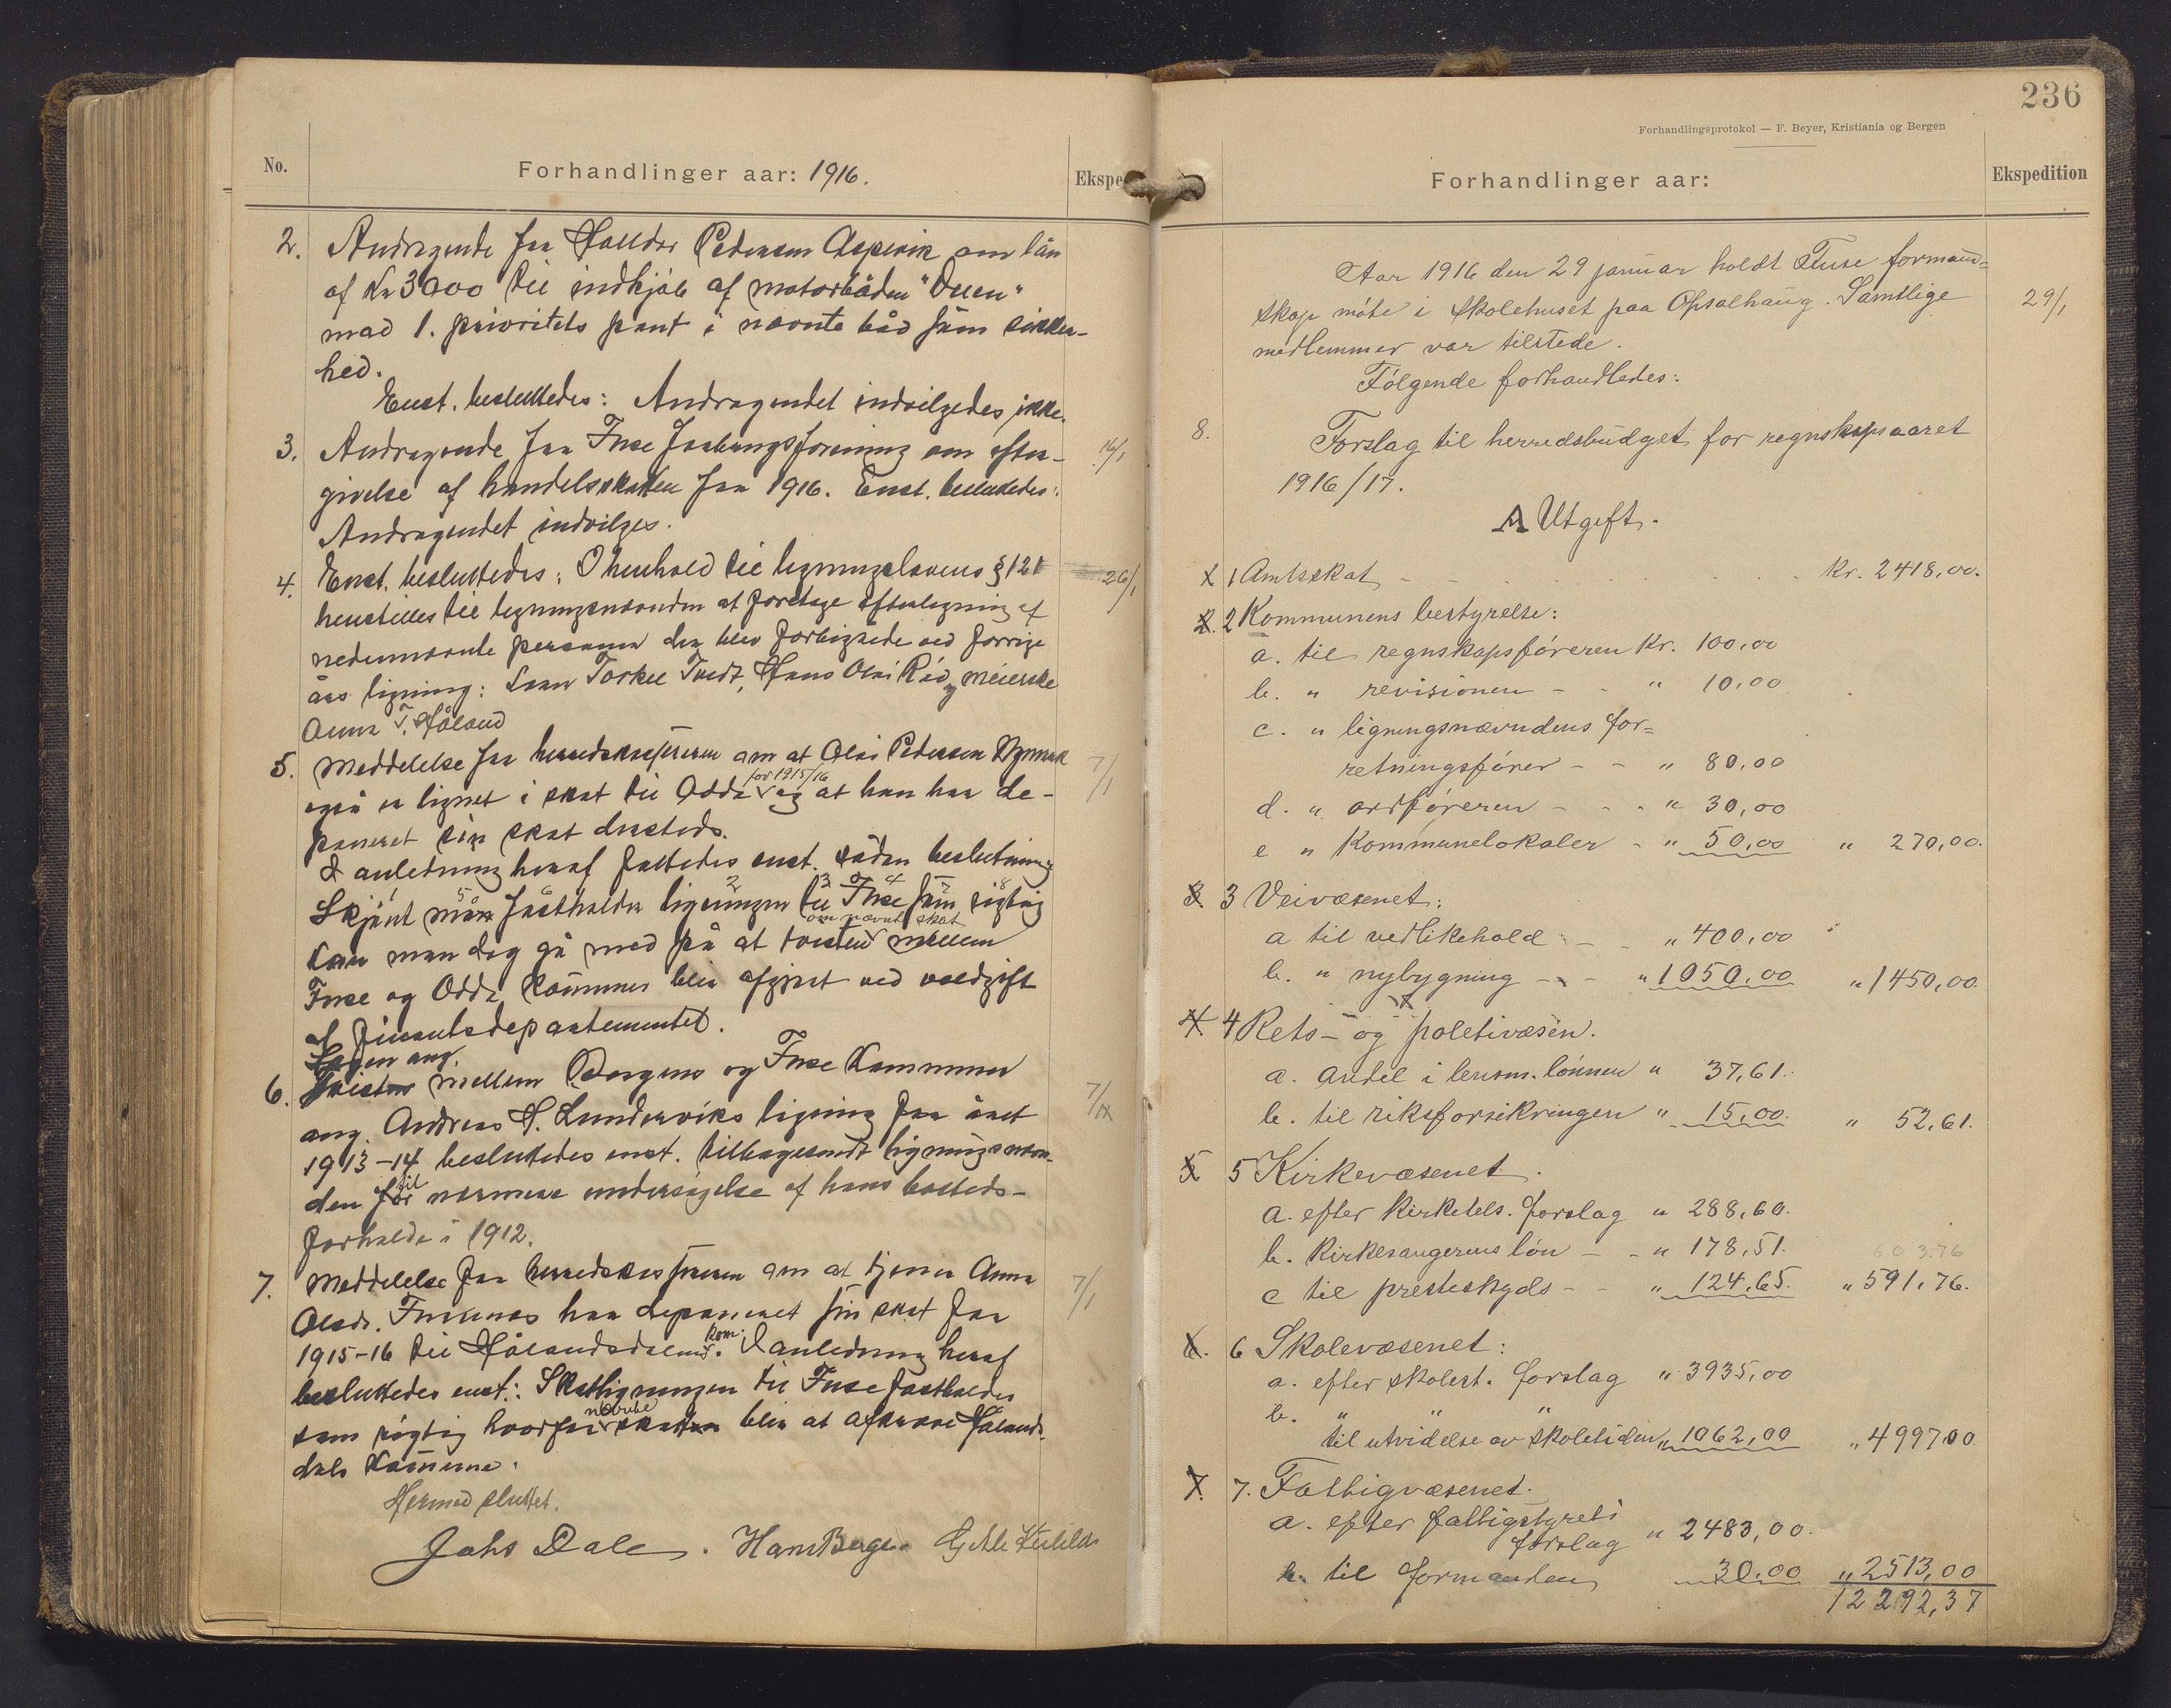 No.
Forhandlinger aar: 1916.
Ekspe
2. Andragende fra Halldor Pedersen Aspevik om lån
af Kr 3000 til indkjøb af motorbåden "Duen"
mod 1. prioritets pant i nævnte båd som sikker-
hed.
Enst. besluttedes: Andragendet indvilgedes ikke.
3. Andragende fra Fuse Forbrugsforening om efter- 14/1
givelse af handelsskatten for 1916. Enst. besluttedes:
Andragendet indvilges.
4. Enst. besluttedes: I henhold til ligningslovens § 121 26/1
henstilles til ligningsnævnden at foretage efterligning af
nedennævnte personer der blev forbigåede ved forrige
års ligning: Torkel Tvedt, Hans Olai Rød og meierske
Anna T. Håland
5. Meddelelse fra herredskassereren om at Olai Pedersen 7/1
også er lignet i skat til Odda for 1915/16 og at han har de-
poneret sin skat dersteds.
I anledning heraf fattedes enst. sådan beslutning
Skjønt man fastholder ligningen til Fuse som rigtig
kan man dog gå med på at tvisten om nævnte skat mellem
Fuse og Odda kommuner blir afgjort ved voldgift
af Finantsdepartementet.
6. Sagen ang. Tvisten mellem Bergens og Fuse Kommuner 7/1
ang. Andreas H. Lunderviks ligning for året
1913-14 besluttedes enst. tilbagesendt ligningsnævn-
den for til nærmere undersøgelse af hans bosteds-
forholde i 1912.
7. Meddelelse fra herredskassereren om at tjener Anna 7/1
Olsdr. Fusenes har deponeret sin skat for
1915-16 til Hålandsdalens kom. I anledning heraf
besluttedes enst.: Skatligningen til Fuse fastholdes
som rigtig hvorfor nævnte skatten blir at afkræve Hålands-
dals kommune.
Hermed sluttet.
Johs Dale. Hans Berge
236
Forhandlingsprotokol — F. Beyer, Kristiania og Bergen
Forhandlinger aar:
Ekspedition
Aar 1916 den 29 januar holdt Fuse formand=
skap møte i skolehuset paa Opsalhaug. Samtlige 29/1
medlemmer var tilstede.
Følgende forhandledes:
8. Forslag til herredsbudget for regnskapsaaret
1916/17.
A Utgift.
1 1 Amtsskat - - Kr. 2418,00.
2. 2 Kommunens bestyrelse:
a. til regnskapsføreren Kr. 100,00
b. " revisionen - - " 10,00
c. " ligningsnævndens for=
retningsfører - - " 80,00
d. " ordføreren - - " 30,00
e " Kommunelokaler - " 50,00 " 270,00.
3 3 Veivæsenet:
a til vedlikehold - - " 400,00
b. " nybygning - - " 1050,00 " 1450,00.
4 4 Rets- og politivæsen.
a. andel i lensm. lønnen " 37,61.
b. til riksforsikringen " 15,00. " 52,61.
5 5 Kirkevæsenet.
a. efter kirketels. forslag " 288,60.
b. Kirkesangerens løn - - " 178,51. 603.76
c til presteskyds - - " 124,65. " 591,76.
6. 6 Skolevæsenet:
a. efter skolest. forslag " 3935,00
b. " " "
til utvidelse av skoletiden " 1062,00 " 4997,00.
7. 7. Fattigvæsenet.
a. efter fattigstyrets
forslag " 2483,00.
b. til formanden 30,00 " 2513,00
12292,37